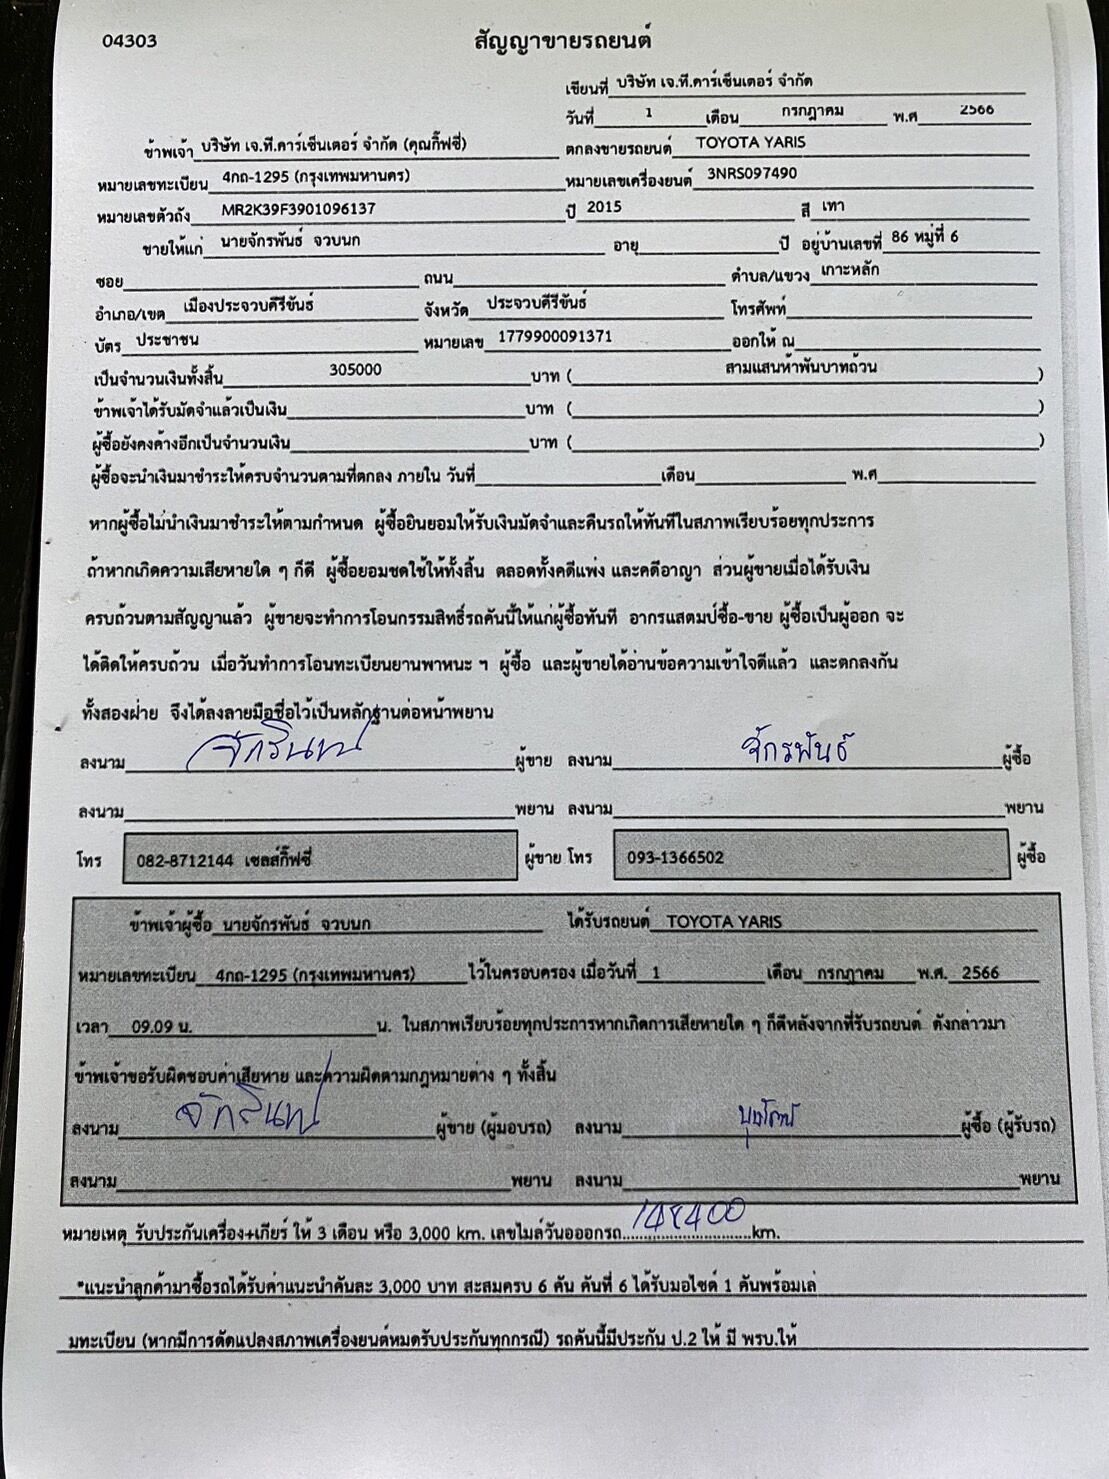 04303
สัญญาขายรถยนต์
เขียนที่ บริษัท เจ.ที.คาร์เซ็นเตอร์ จำกัด
วันที่ 1 เดือน กรกฎาคม พ.ศ 2566
ข้าพเจ้า บริษัท เจ.ที.คาร์เซ็นเตอร์ จำกัด (คุณกิ๊ฟซี่) ตกลงขายรถยนต์ TOYOTA YARIS
หมายเลขทะเบียน 4กถ-1295 (กรุงเทพมหานคร) หมายเลขเครื่องยนต์ 3NRS097490
หมายเลขตัวถัง MR2K39F3901096137 ปี 2015 สี เทา
ขายให้แก่ นายจักรพันธ์ จวบนก อายุ ปี อยู่บ้านเลขที่ 86 หมู่ที่ 6
ซอย ถนน ตำบล/แขวง เกาะหลัก
อำเภอ/เขต เมืองประจวบคีรีขันธ์ จังหวัด ประจวบคีรีขันธ์ โทรศัพท์
บัตร ประชาชน หมายเลข 1779900091371 ออกให้ ณ
เป็นจำนวนเงินทั้งสิ้น 305000 บาท ( สามแสนห้าพันบาทถ้วน )
ข้าพเจ้าได้รับมัดจำแล้วเป็นเงิน บาท ( )
ผู้ซื้อยังคงค้างอีกเป็นจำนวนเงิน บาท ( )
ผู้ซื้อจะนำเงินมาชำระให้ครบจำนวนตามที่ตกลง ภายใน วันที่ เดือน พ.ศ
หากผู้ซื้อไม่นำเงินมาชำระให้ตามกำหนด ผู้ซื้อยินยอมให้รับเงินมัดจำและคืนรถให้ทันทีในสภาพเรียบร้อยทุกประการ
ถ้าหากเกิดความเสียหายใด ๆ ก็ดี ผู้ซื้อยอมชดใช้ให้ทั้งสิ้น ตลอดทั้งคดีแพ่ง และคดีอาญา ส่วนผู้ขายเมื่อได้รับเงิน
ครบถ้วนตามสัญญาแล้ว ผู้ขายจะทำการโอนกรรมสิทธิ์รถคันนี้ให้แก่ผู้ซื้อทันที อากรแสตมป์ซื้อ-ขาย ผู้ซื้อเป็นผู้ออก จะ
ได้ติดให้ครบถ้วน เมื่อวันทำการโอนทะเบียนยานพาหนะ ฯ ผู้ซื้อ และผู้ขายได้อ่านข้อความเข้าใจดีแล้ว และตกลงกัน
ทั้งสองฝ่าย จึงได้ลงลายมือชื่อไว้เป็นหลักฐานต่อหน้าพยาน
ลงนาม จักรินทน์ ผู้ขาย ลงนาม จักรพันธ์ ผู้ซื้อ
ลงนาม พยาน ลงนาม พยาน
โทร 082-8712144 เซลส์กิ๊ฟซี่ ผู้ขาย โทร 093-1366502 ผู้ซื้อ
ข้าพเจ้าผู้ซื้อ นายจักรพันธ์ จวบนก ได้รับรถยนต์ TOYOTA YARIS
หมายเลขทะเบียน 4กถ-1295 (กรุงเทพมหานคร) ไว้ในครอบครอง เมื่อวันที่ 1 เดือน กรกฎาคม พ.ศ. 2566
เวลา 09.09 น. น. ในสภาพเรียบร้อยทุกประการหากเกิดการเสียหายใด ๆ ก็ดีหลังจากที่รับรถยนต์ ดังกล่าวมา
ข้าพเจ้าขอรับผิดชอบค่าเสียหาย และความผิดตามกฎหมายต่าง ๆ ทั้งสิ้น
ลงนาม ผู้ขาย (ผู้มอบรถ) ลงนาม ผู้ซื้อ (ผู้รับรถ)
ลงนาม พยาน ลงนาม พยาน
หมายเหตุ รับประกันเครื่อง+เกียร์ ให้ 3 เดือน หรือ 3,000 km. เลขไมล์วันอออกรถ 148400 km.
*แนะนำลูกค้ามาซื้อรถได้รับค่าแนะนำคันละ 3,000 บาท สะสมครบ 6 คัน คันที่ 6 ได้รับมอไซด์ 1 คันพร้อมเล่
มทะเบียน (หากมีการดัดแปลงสภาพเครื่องยนต์หมดรับประกันทุกกรณี) รถคันนี้มีประกัน ป.2 ให้ มี พรบ.ให้